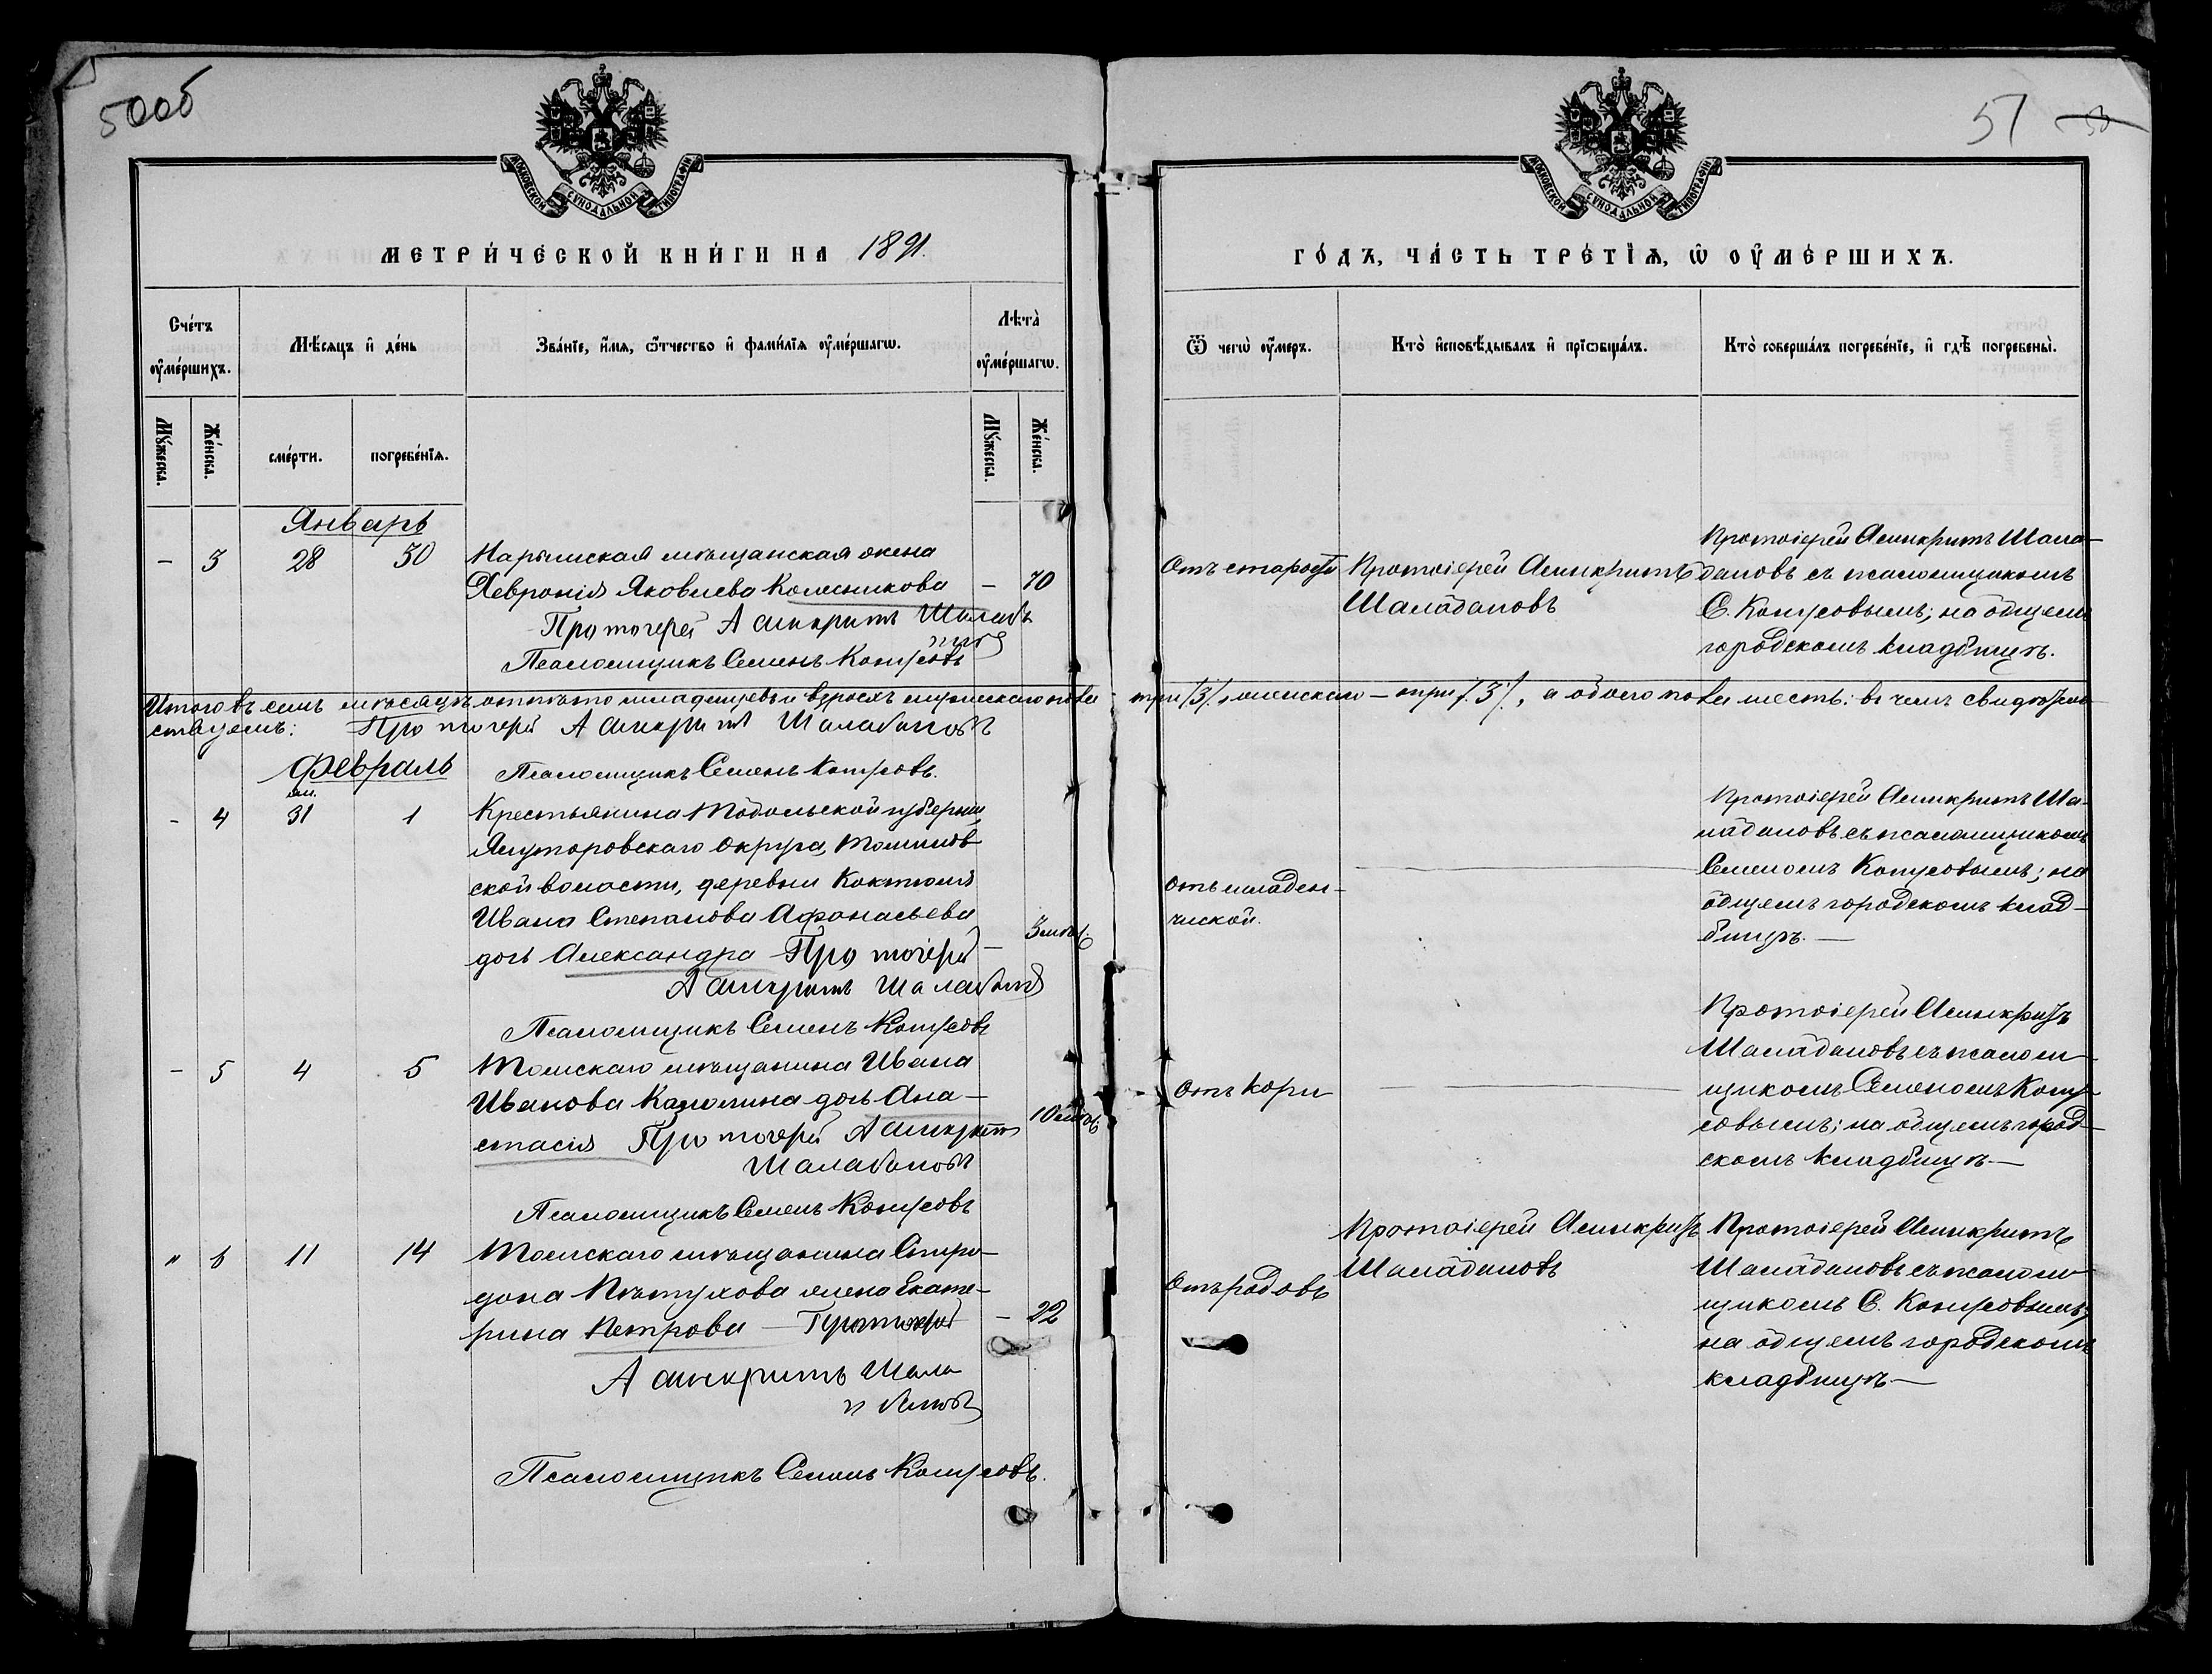 50об
51
МОСКОВСКОЙ СѴНОДАЛЬНОЙ ТИПОГРАФІИ
МОСКОВСКОЙ СѴНОДАЛЬНОЙ ТИПОГРАФІИ
МЕТРИ́ЧЕСКОЙ КНИ́ГИ НА 1891.
ГО́ДЪ, ЧА́СТЬ ТРЕ́ТІѦ, Ѡ҆ ОУ҆МЕ́РШИХЪ.
Сче́тъ
оу҆ме́ршихъ.
Мѣ́сѧцъ и҆ де́нь
Зва́нїе, и҆́мѧ, ѻ҆́тчество и҆ фами́лїѧ оу҆ме́ршагѡ.
Лѣта̀
оу҆ме́ршагѡ.
Ѿ чегѡ̀ оу҆́меръ.
Кто̀ и҆сповѣ́дывалъ и҆ прїѡбща́лъ.
Кто̀ соверша́лъ погребе́нїе, и҆ гдѣ̀ погребены̀.
Мꙋ́жеска.
Же́нска.
сме́рти.
погребе́нїѧ.
Мꙋ́жеска.
Же́нска.
Январь
- 3 28 30 Нарымская мѣщанская жена
Хевронія Яковлева Колесникова - 70
Протоіерей Асинкритъ Шалаба
новъ
Псаломщикъ Семенъ Конусовъ
Отъ старости
Протоіерей Асинкритъ
Шалабановъ
Протоіерей Асинкритъ Шала-
бановъ съ псаломщикомъ
С. Конусовымъ; на общемъ
городскомъ кладбищѣ.
Итого въ семъ мѣсяцѣ отпѣто младенцевъ и взросл. мужескаго пола - три /3/, женскаго - три /3/, а обоего пола шесть: въ чемъ свидѣтель-
ствуемъ: Протоіерей Асинкритъ Шалабановъ
Февраль Псаломщикъ Семенъ Конусовъ.
ян.
- 4 31 1 Крестьянина Тобольской губерніи,
Ялуторовскаго округа, Томилов-
ской волости, деревни Коктюля
Ивана Степанова Афанасьева
дочь Александра Протоіерей - 3 мѣс.
Асинкритъ Шалабановъ
Псаломщикъ Семенъ Конусовъ
Отъ младен-
ческой.
Протоіерей Асинкритъ Ша-
лабановъ съ псаломщикомъ
Семеномъ Конусовымъ; на
общемъ городскомъ клад-
бищѣ. -
- 5 4 5 Томскаго мѣщанина Ивана
Иванова дочь Ана-
стасія Протоіерей Асинкритъ 10 мѣс.
Шалабановъ
Псаломщикъ Семенъ Конусовъ
Отъ кори
Протоіерей Асинкритъ
Шалабановъ съ псалом-
щикомъ Семеномъ Кону-
совымъ; на общемъ город-
скомъ кладбищѣ -
" 6 11 14 Томскаго мѣщанина Спири-
дона Пѣтухова жена Екате-
рина Петрова - Протоіерей - 22
Асинкритъ Шала
бановъ
Псаломщикъ Семенъ Конусовъ.
Отъ родовъ
Протоіерей Асинкритъ
Шалабановъ
Протоіерей Асинкритъ
Шалабановъ съ псалом-
щикомъ С. Конусовымъ;
на общемъ городскомъ
кладбищѣ -